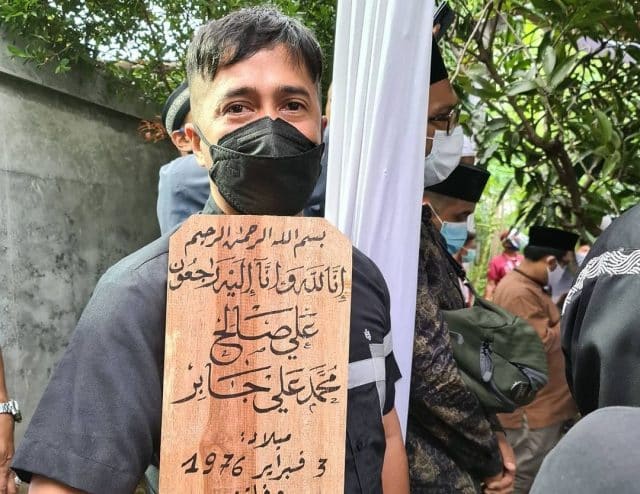 بسم الله الرحمن الرحيم
إِنَّا لِلَّهِ وَإِنَّا إِلَيْهِ رَاجِعُونَ
عَلِي صَالِح
مُحَمَّد عَلِي جَابِر
ميلاد:
3 فبراير 1976
وفاته